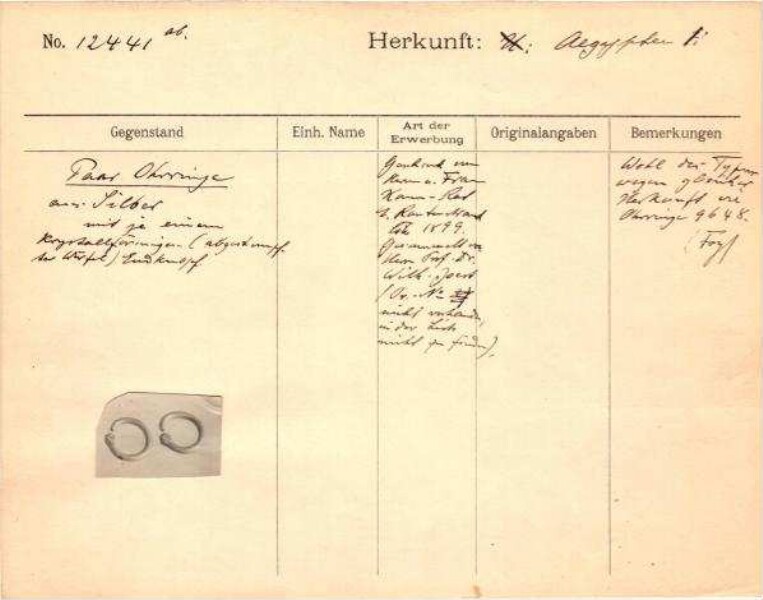 No. 12441 ab.
Herkunft: Aegypten
Gegenstand
Einh. Name
Art der Erwerbung
Originalangaben
Bemerkungen
Paar Ohrringe
aus Silber
mit je einem
krystallförmigen (abgestumpf-
ter Würfel) Endknopf.
Geschenk von
Herrn u. Frau
Rautenstrauch
1899.
Gesammelt von
Herrn Prof. Dr.
Wilh. Joest
nicht vorhanden,
in der Liste
nicht zu finden).
Wohl des Typus
wegen gleicher
Herkunft wie
Ohrringe 9648.
(Foy)